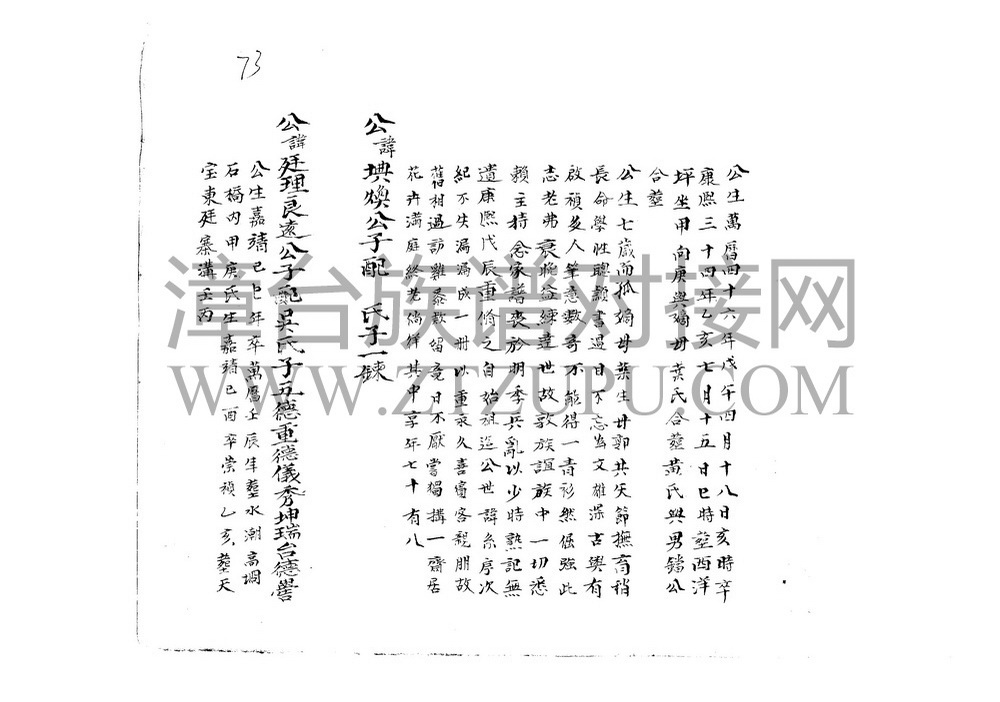 73
公生萬曆四十六年戊午四月十八日亥時卒
康熙三十四年乙亥七月十五日巳時塟西洋
坪坐甲向庚與嫡母葉氏合塟黃氏與男鐠公
合塟
公生七歲而孤嫡母葉生母郭共矢節撫育稍
長命學性聰頴書過目不忘為文雄深古奧有
啟禎多人筆意數奇不能得一青衫然倔強此
志老弗衰晚益練達世故敦族誼族中一切悉
賴主持念家譜喪於明季兵亂以少時熟記無
遺康熙戊辰重脩之自始祖迄公世諱系序次
紀不失漏編成一冊以重永久喜賓客親朋故
舊相過訪雞黍款留竟日不厭嘗獨搆一齋居
花卉滿庭終老徜徉其中享年七十有八
公諱㙉煥公子配 氏子一鍊
公諱廷理良遠公子配吳氏子五德重德儀秀坤瑞台德譽
公生嘉靖己巳年卒萬曆壬辰年塟水潮高壩
石橋內甲庚氏生嘉靖己酉卒崇禎乙亥塟天
宝東廷寨溝壬丙
漳台族谱对接网
WWW.ZTZUPU.COM